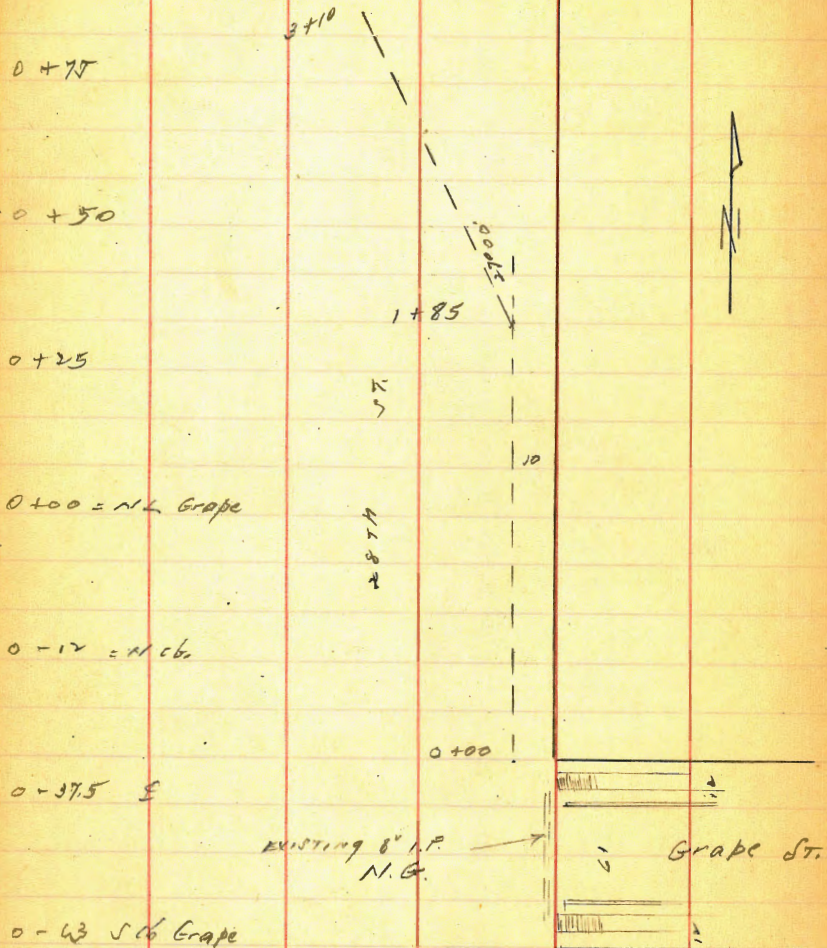 3+10
0 + 75
0 + 50
1 + 85
0 + 25
ST.
10
0+00 = NL Grape
28 TH
0 - 12 = N cb.
0+00
0 - 37.5 ℄
EXISTING 8" I.P.
N.G.
Grape ST.
0 - 63 S cb Grape
N